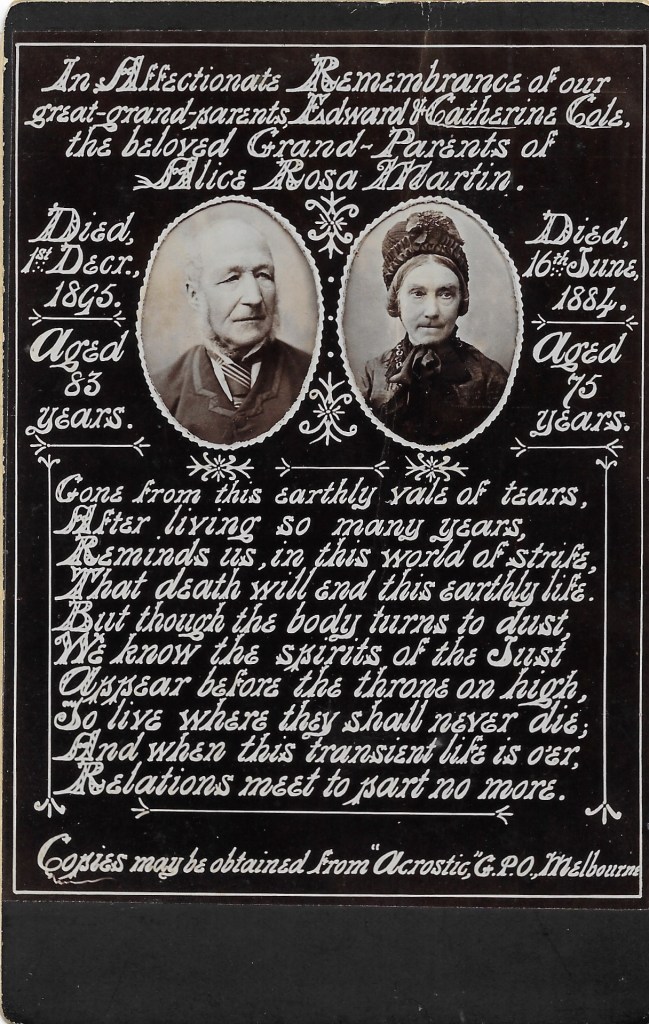 In Affectionate Remembrance of our
great-grand-parents, Edward & Catherine Cole,
the beloved Grand-Parents of
Alice Rosa Martin.
Died,
1st Decr.,
1895.
Aged
83
years.
Died,
16th June,
1884.
Aged
75
years.
Gone from this earthly vale of tears,
After living so many years,
Reminds us, in this world of strife,
That death will end this earthly life.
But though the body turns to dust,
We know the spirits of the Just
Appear before the throne on high,
To live where they shall never die;
And when this transient life is o'er,
Relations meet to part no more.
Copies may be obtained from "Acrostic," G.P.O., Melbourne